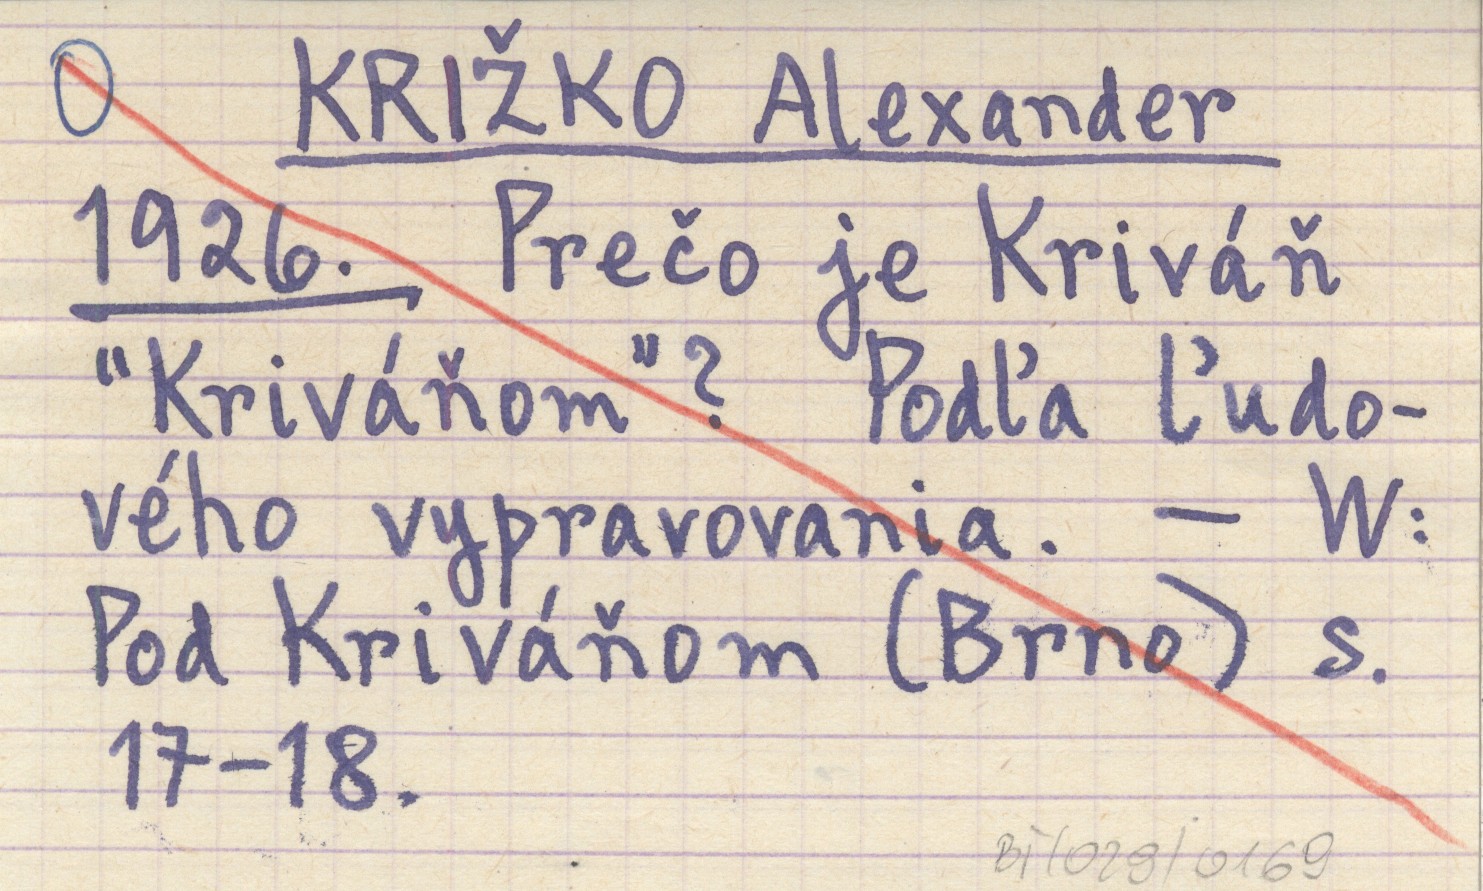 O KRIŽKO Alexander
1926. Prečo je Kriváň
"Kriváňom"? Podľa ľudo-
vého vypravovania. — W:
Pod Kriváňom (Brno) s.
17-18.
BI/029/0169